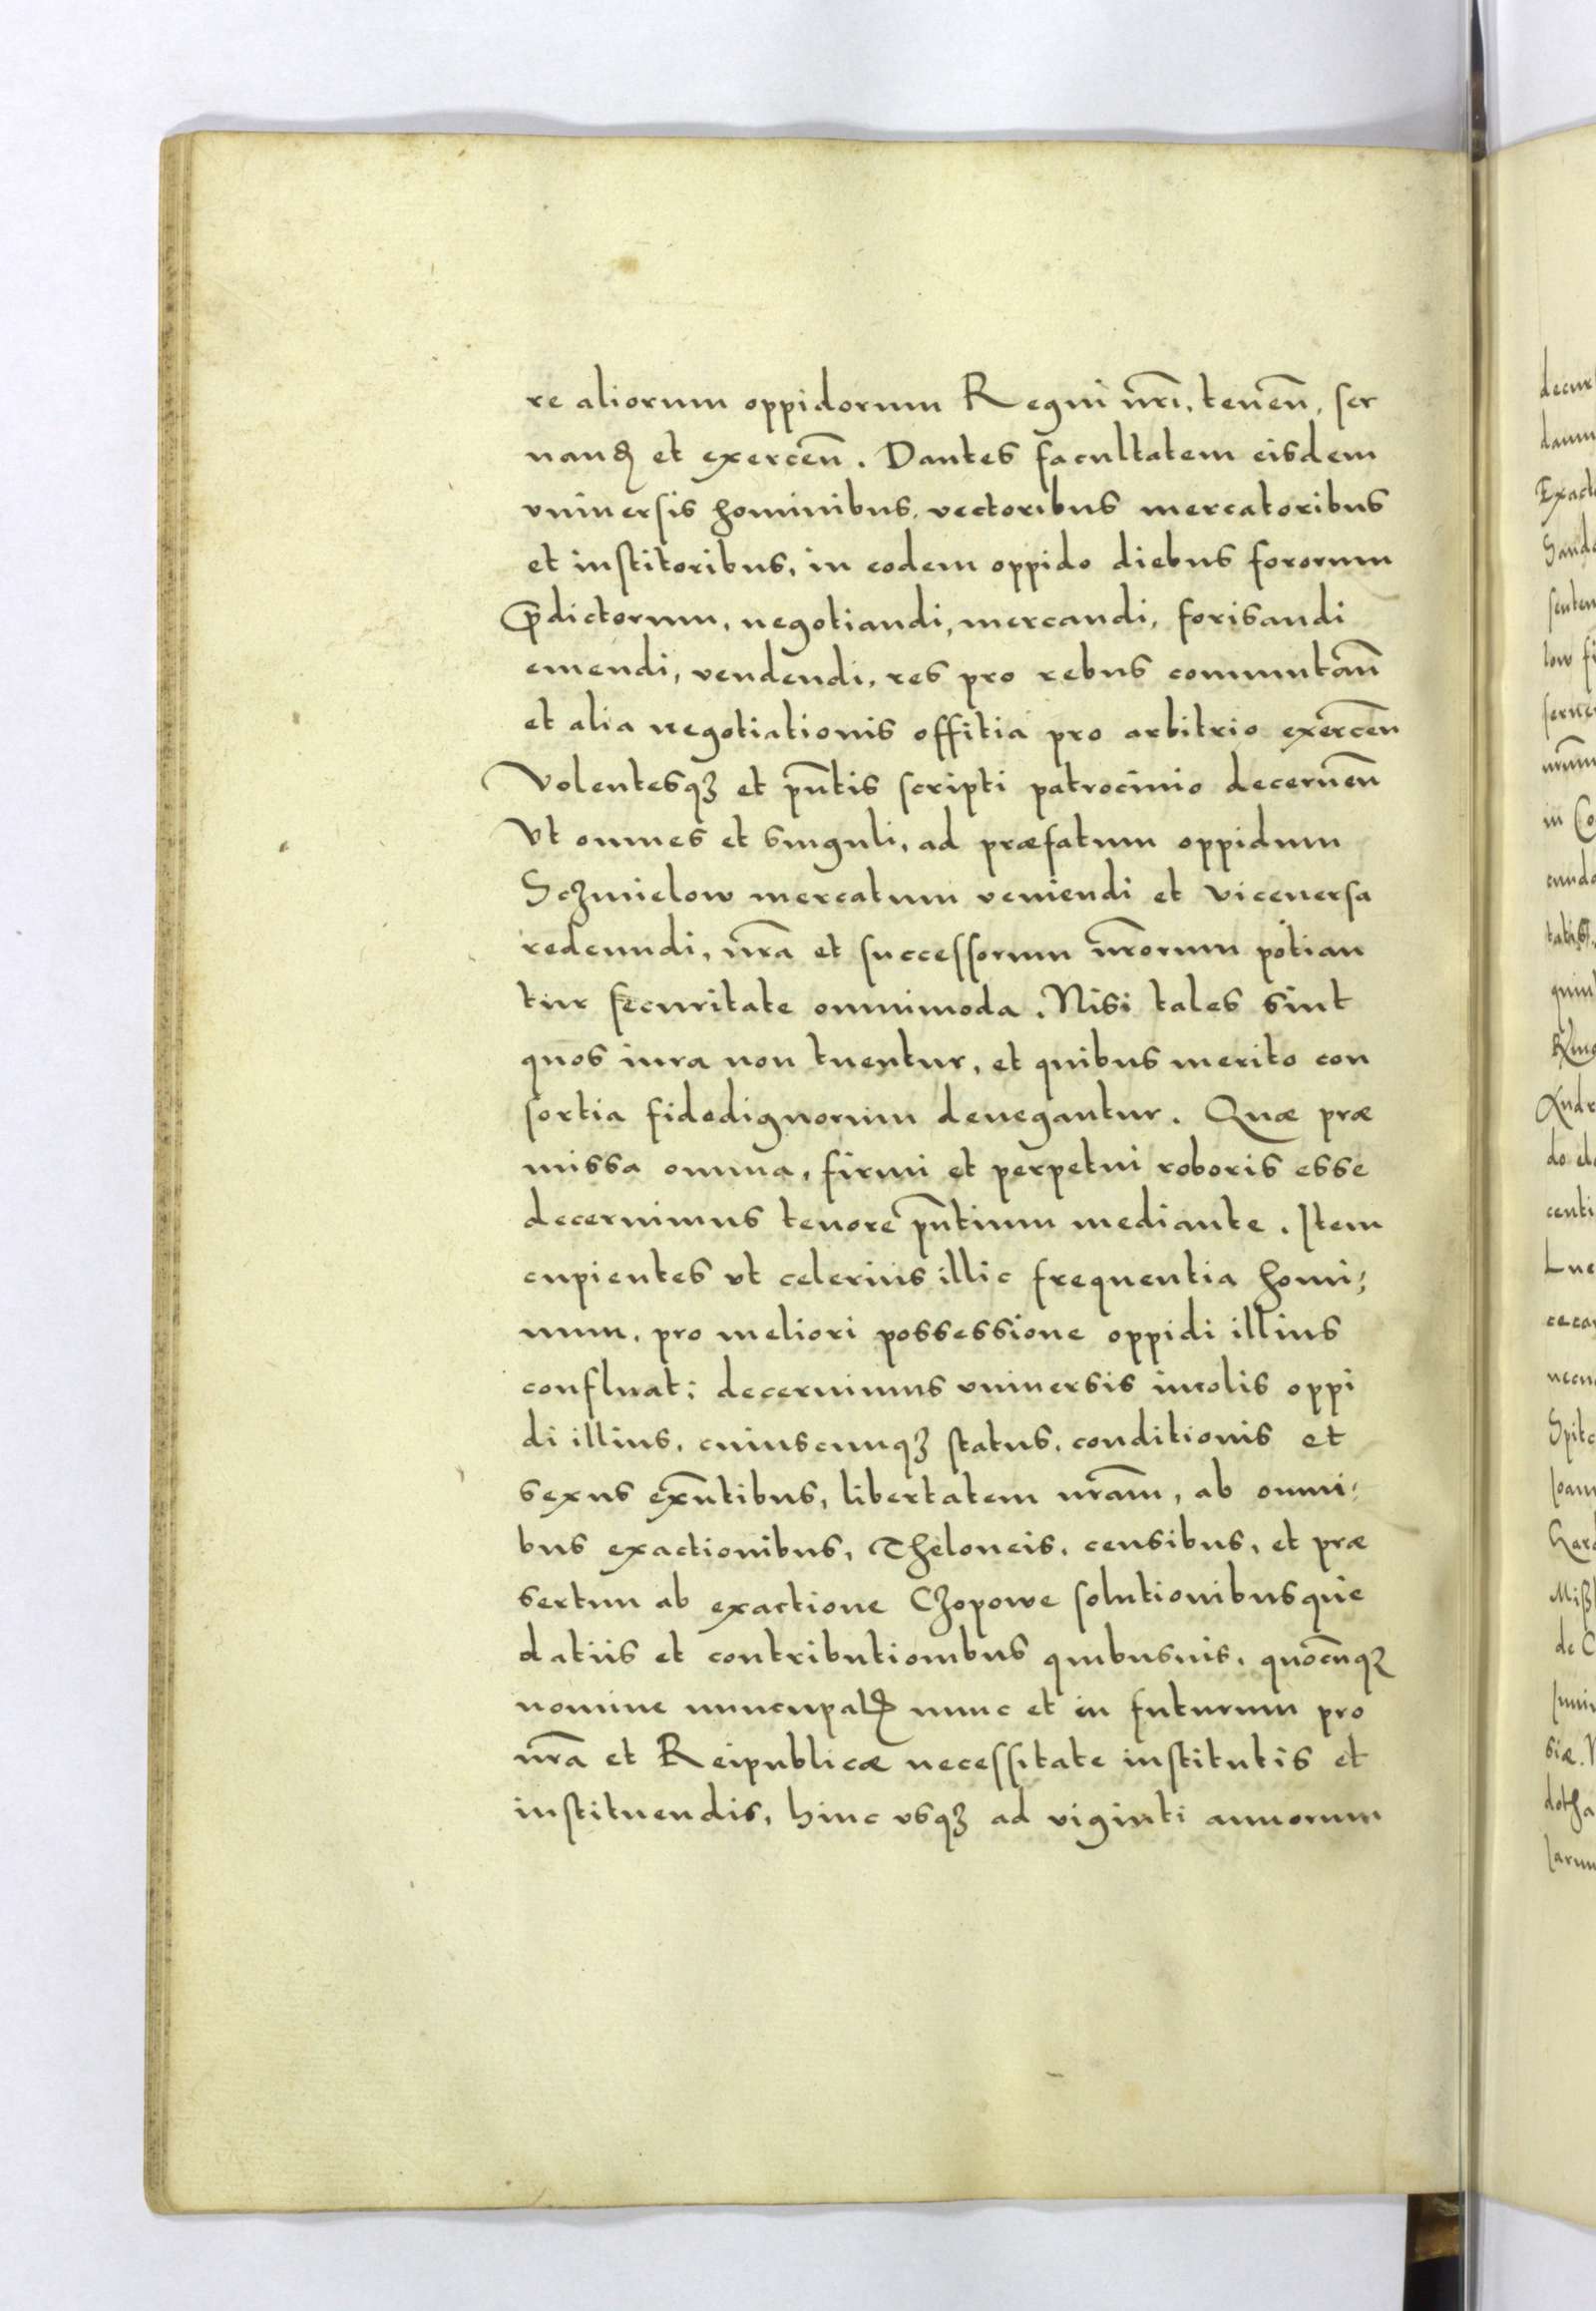 re aliorum oppidorum Regni nr̄i, tenen̄, ser
uanꝺ et exercen̄. Dantes facultatem eisdem
vniuersis hominibus, vectoribus mercatoribus
et institoribus, in eodem oppido diebus fororum
p̄dictorum, negotiandi, mercandi, forisandi
emendi, vendendi, res pro rebus commutan̄
et alia negotiationis offitia pro arbitrio exercen̄
Volentesqꝫ et pn̄tis scripti patrocinio decernen̄
Vt omnes et singuli, ad præfatum oppidum
Sczmielow mercatum veniendi et viceuersa
redeundi, nr̄a et successorum nr̄orum potian
tur securitate omnimoda. Nisi tales sint
quos iura non tuentur, et quibus merito con
sortia fidedignorum denegantur. Quæ præ
missa omnia, firmi et perpetui roboris esse
decernimus tenore pn̄tium mediante. Item
cupientes vt celerius illic frequentia homi;
num, pro meliori possessione oppidi illius
confluat: decernimus vniuersis incolis oppi
di illius, cuiuscunqꝫ status, conditionis et
sexus exn̄tibus, libertatem nr̄am, ab omni;
bus exactionibus, Theloneis, censibus, et præ
sertim ab exactione Czopowe solutionibusque
datiis et contributionibus quibusuis, quocūnqꝫ
nomine nuncupatꝭ nunc et in futurum pro
nr̄a et Reipublicæ necessitate institutis et
instituendis, hinc vsqꝫ ad viginti annorum
decur
damn
Exact
Sando
senten
low fi
seruc
in Co
cunda
tatis
quin
Andr
do el
centi
Luc
cecar
necn
Spitc
Ioan
Garb
de C
siæ. N
dotha
larum